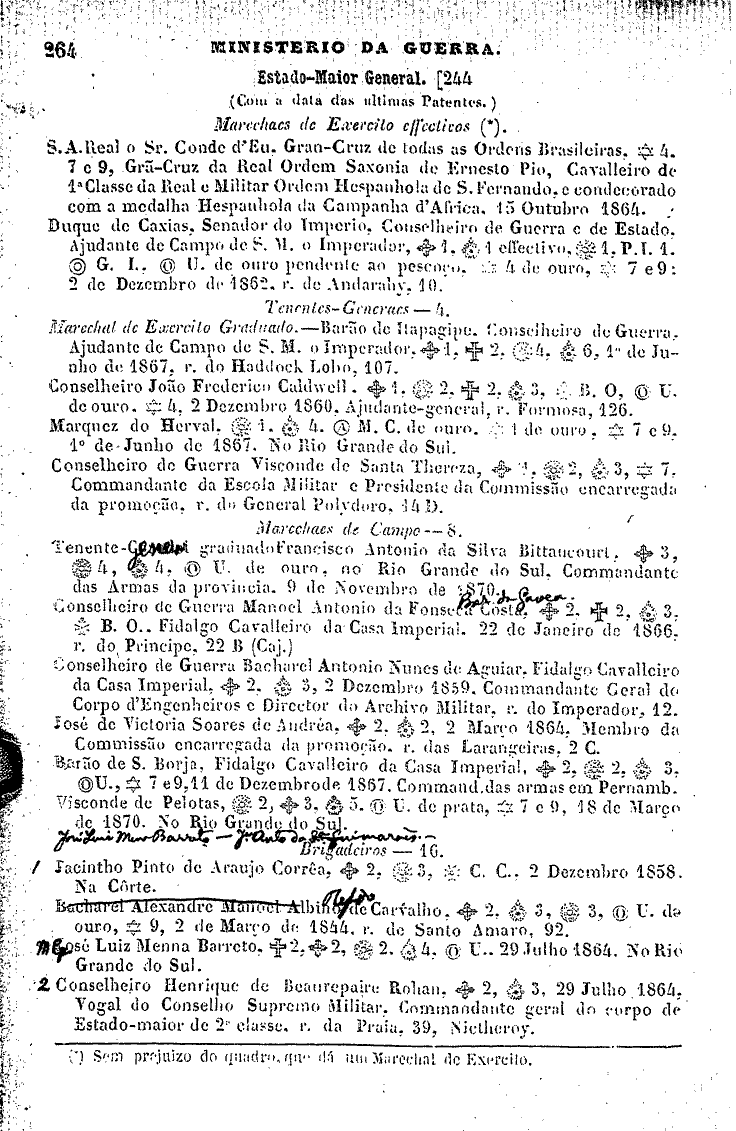 264 MINISTERIO DA GUERRA.
Estado-Maior General. [244
(Com a data das ultimas Patentes.)
Marechaes de Exercito effectivos (*).
S.A.Real o Sr. Conde d'Eu. Gran-Cruz de todas as Ordens Brasileiras, ✡ 4.
7 e 9, Grã-Cruz da Real Ordem Saxonia de Ernesto Pio, Cavalleiro de
1ª Classe da Real e Militar Ordem Hespanhola de S. Fernando, e condecorado
com a medalha Hespanhola da Campanha d'Africa. 15 Outubro 1864.
Duque de Caxias, Senador do Imperio, Conselheiro de Guerra e de Estado,
Ajudante de Campo de S. M. o Imperador, 1, 1 effectivo, 1, P. I. 1.
G. I., U. de ouro pendente ao pescoço, 4 de ouro, 7 e 9:
2 de Dezembro de 1862, r. de Andarahy, 10.
Tenentes-Generaes — 4.
Marechal de Exercito Graduado.—Barão de Itapagipe, Conselheiro de Guerra,
Ajudante de Campo de S. M. o Imperador, 1, 2, 4, 6, 1º de Ju-
nho de 1867, r. do Haddock Lobo, 107.
Conselheiro João Frederico Caldwell, 1, 2, 2, 3, B. O, U.
de ouro, ✡ 4, 2 Dezembro 1860, Ajudante-general, r. Formosa, 126.
Marquez do Herval, 1, 4, M. C. de ouro, 1 de ouro, ✡ 7 e 9,
1º de Junho de 1867. No Rio Grande do Sul.
Conselheiro de Guerra Visconde de Santa Thereza, 1, 2, 3, ✡ 7.
Commandante da Escola Militar e Presidente da Commissão encarregada
da promoção, r. do General Polydoro, 14 D.
Marechaes de Campo — 8.
Tenente-General graduado Francisco Antonio da Silva Bittancourt, 3,
4, 4, U. de ouro, no Rio Grande do Sul, Commandante
das Armas da provincia. 9 de Novembro de 1870.
Bar. da Gavea.
Conselheiro de Guerra Manoel Antonio da Fonseca Costa, 2, 2, 3,
B. O.. Fidalgo Cavalleiro da Casa Imperial. 22 de Janeiro de 1866,
r. do Principe, 22 B (Caj.)
Conselheiro de Guerra Bacharel Antonio Nunes de Aguiar, Fidalgo Cavalleiro
da Casa Imperial, 2, 3, 2 Dezembro 1859. Commandante Geral do
Corpo d'Engenheiros e Director do Archivo Militar, r. do Imperador, 12.
José de Victoria Soares de Andréa, 2, 2, 2 Março 1864, Membro da
Commissão encarregada da promoção, r. das Larangeiras, 2 C.
Barão de S. Borja, Fidalgo Cavalleiro da Casa Imperial, 2, 2, 3,
U., ✡ 7 e 9, 11 de Dezembro de 1867. Command. das armas em Pernamb.
Visconde de Pelotas, 2, 3, 5, U. de prata, ✡ 7 e 9, 18 de Março
de 1870. No Rio Grande do Sul.
José Luiz Men. Barreto — Jº Antº da Sª Guimarães. —
Brigadeiros — 16.
1 Jacintho Pinto de Araujo Corrêa, 2, 3, C. C., 2 Dezembro 1858.
Na Côrte.
Bacharel Alexandre Manoel Albino de Carvalho, 2, 3, 3, U. de
ouro, ✡ 9, 2 de Março de 1844. r. de Santo Amaro, 92.
José Luiz Menna Barreto, 2, 2, 2, 4, U.. 29 Julho 1864. No Rio
Grande do Sul.
2 Conselheiro Henrique de Beaurepaire Rohan, 2, 3, 29 Julho 1864,
Vogal do Conselho Supremo Militar, Commandante geral do corpo de
Estado-maior de 2ª classe, r. da Praia, 39, Nictheroy.
(*) Sem prejuizo do quadro, que dá um Marechal de Exercito.